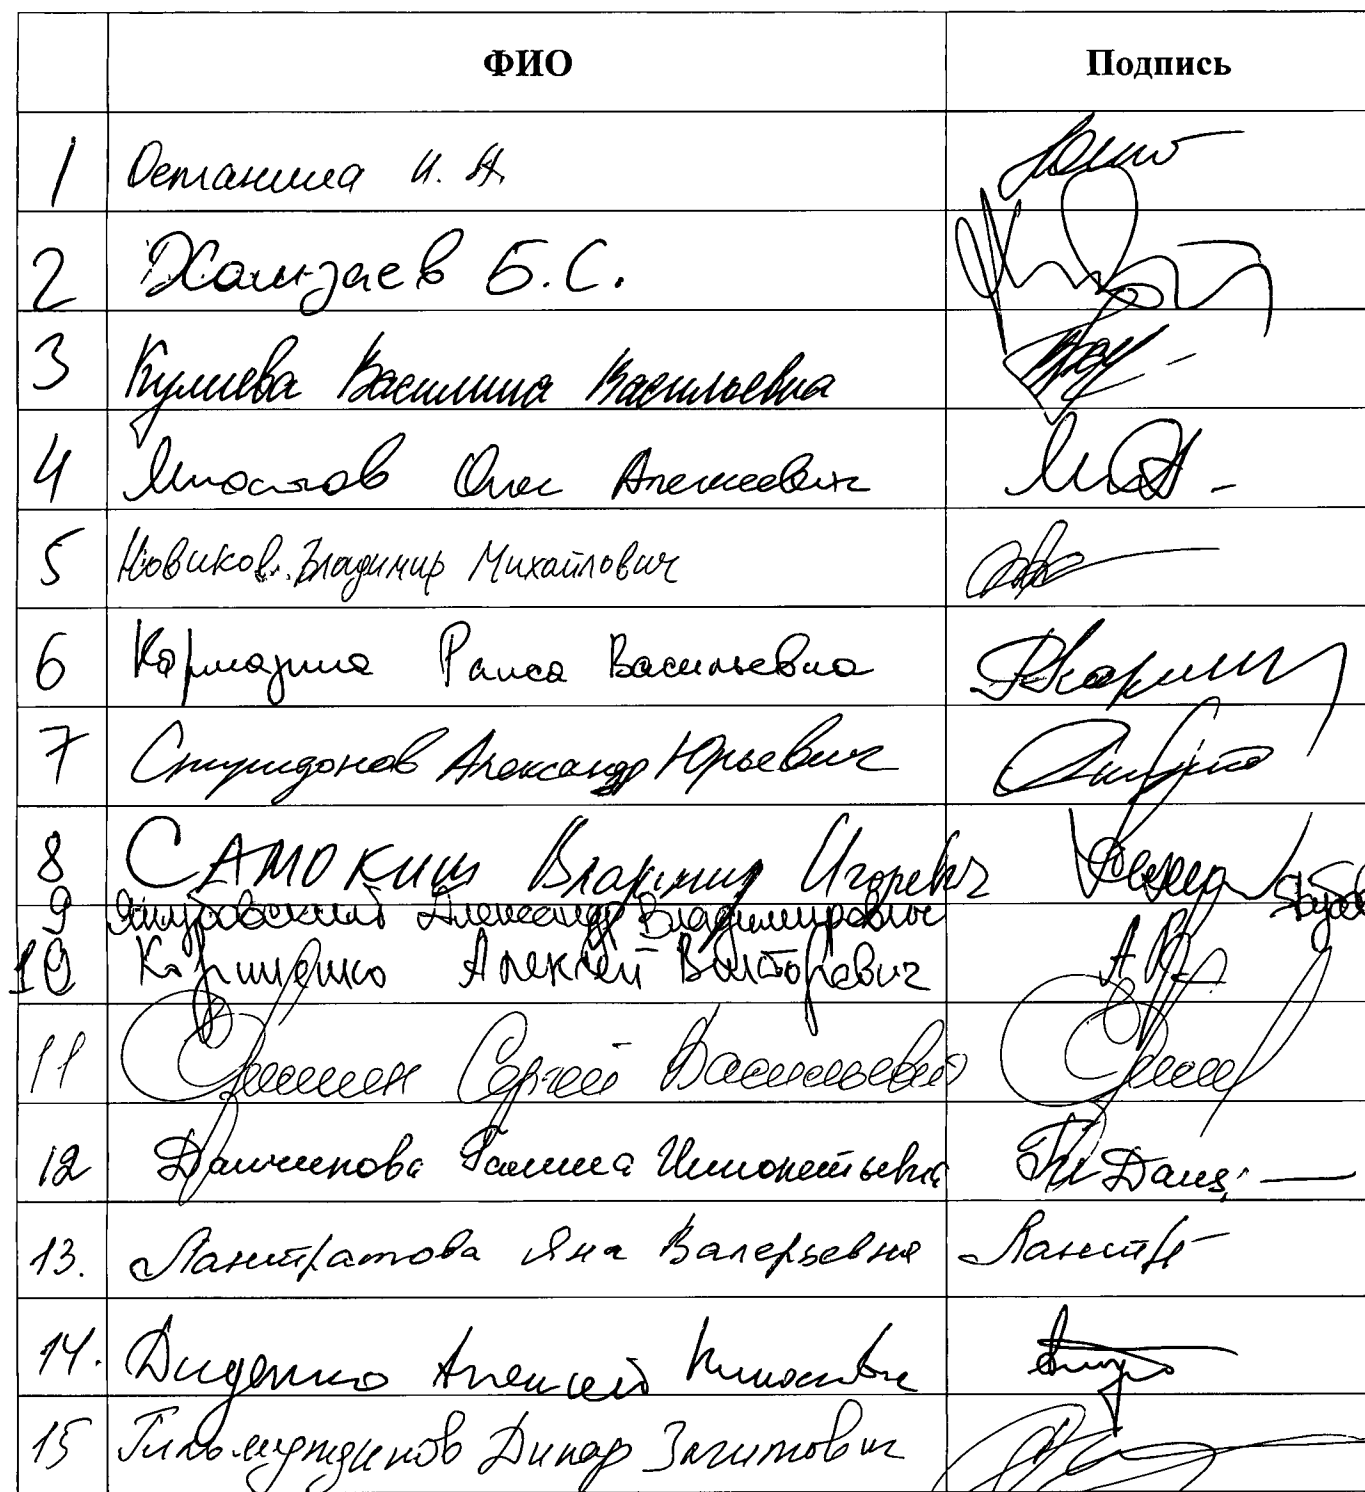 ФИО Подпись
1 Останина Н. А.
2 Хамзаев Б.С.
3 Кулиева Василина Васильевна
4 Михайлов Олег Алексеевич
5 Новиков Владимир Михайлович
6 Кармазина Раиса Васильевна
7 Спиридонов Александр Юрьевич
8 САМОКИШ Владимир Игоревич
9 Якубовский Александр Владимирович
10 Корниенко Алексей Викторович
11 Сергей Васильевич
12 Данчикова Галина Иннокентьевна
13. Лантратова Яна Валерьевна
14. Диденко Алексей Николаевич
15 Гильмутдинов Динар Загитович